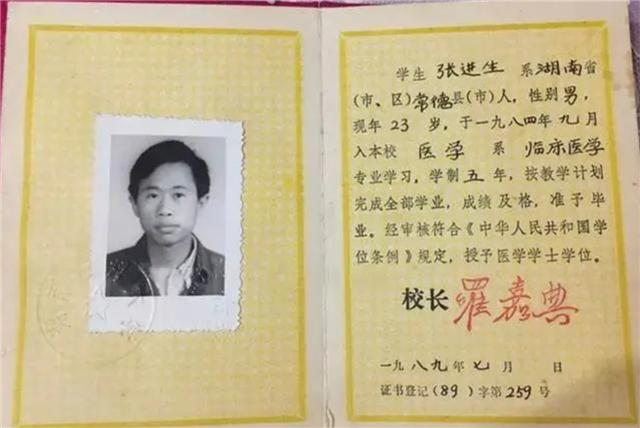 学生 张进生 系湖南省
(市、区)常德县(市)人，性别男，
现年 23 岁，于一九八四年九月
入本校 医学 系 临床医学
专业学习，学制五年，按教学计划
完成全部学业，成绩及格，准予毕
业。经审核符合《中华人民共和国学
位条例》规定，授予医学学士学位。
校长 罗嘉典
一九八九年七月 日
证书登记(89)字第259号